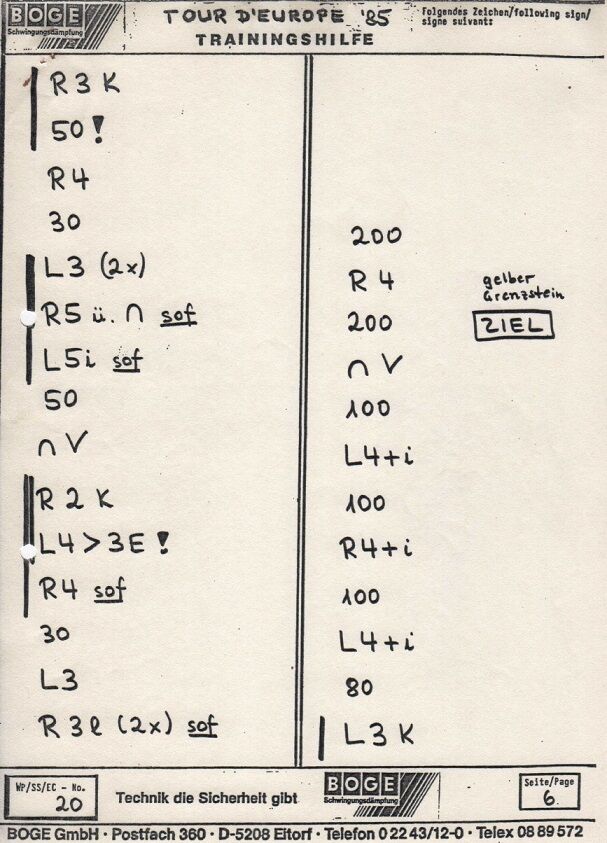 BOGE
Schwingungsdämpfung
TOUR D'EUROPE '85
TRAININGSHILFE
Folgendes Zeichen/following sign/
signe suivants
R 3 K
50 !
R4
30
L3 (2x)
R5 ü. ∩ sof
L5i sof
50
∩ V
R 2 K
L4 > 3E !
R4 sof
30
L3
R 3 l (2x) sof
200
R 4
gelber
Grenzstein
200
ZIEL
∩ V
100
L4+i
100
R4+i
100
L4+i
80
L3 K
WP/SS/EC - No.
20
Technik die Sicherheit gibt
BOGE
Schwingungsdämpfung
Seite/Page
6
BOGE GmbH · Postfach 360 · D-5208 Eitorf · Telefon 0 22 43/12-0 · Telex 08 89 572